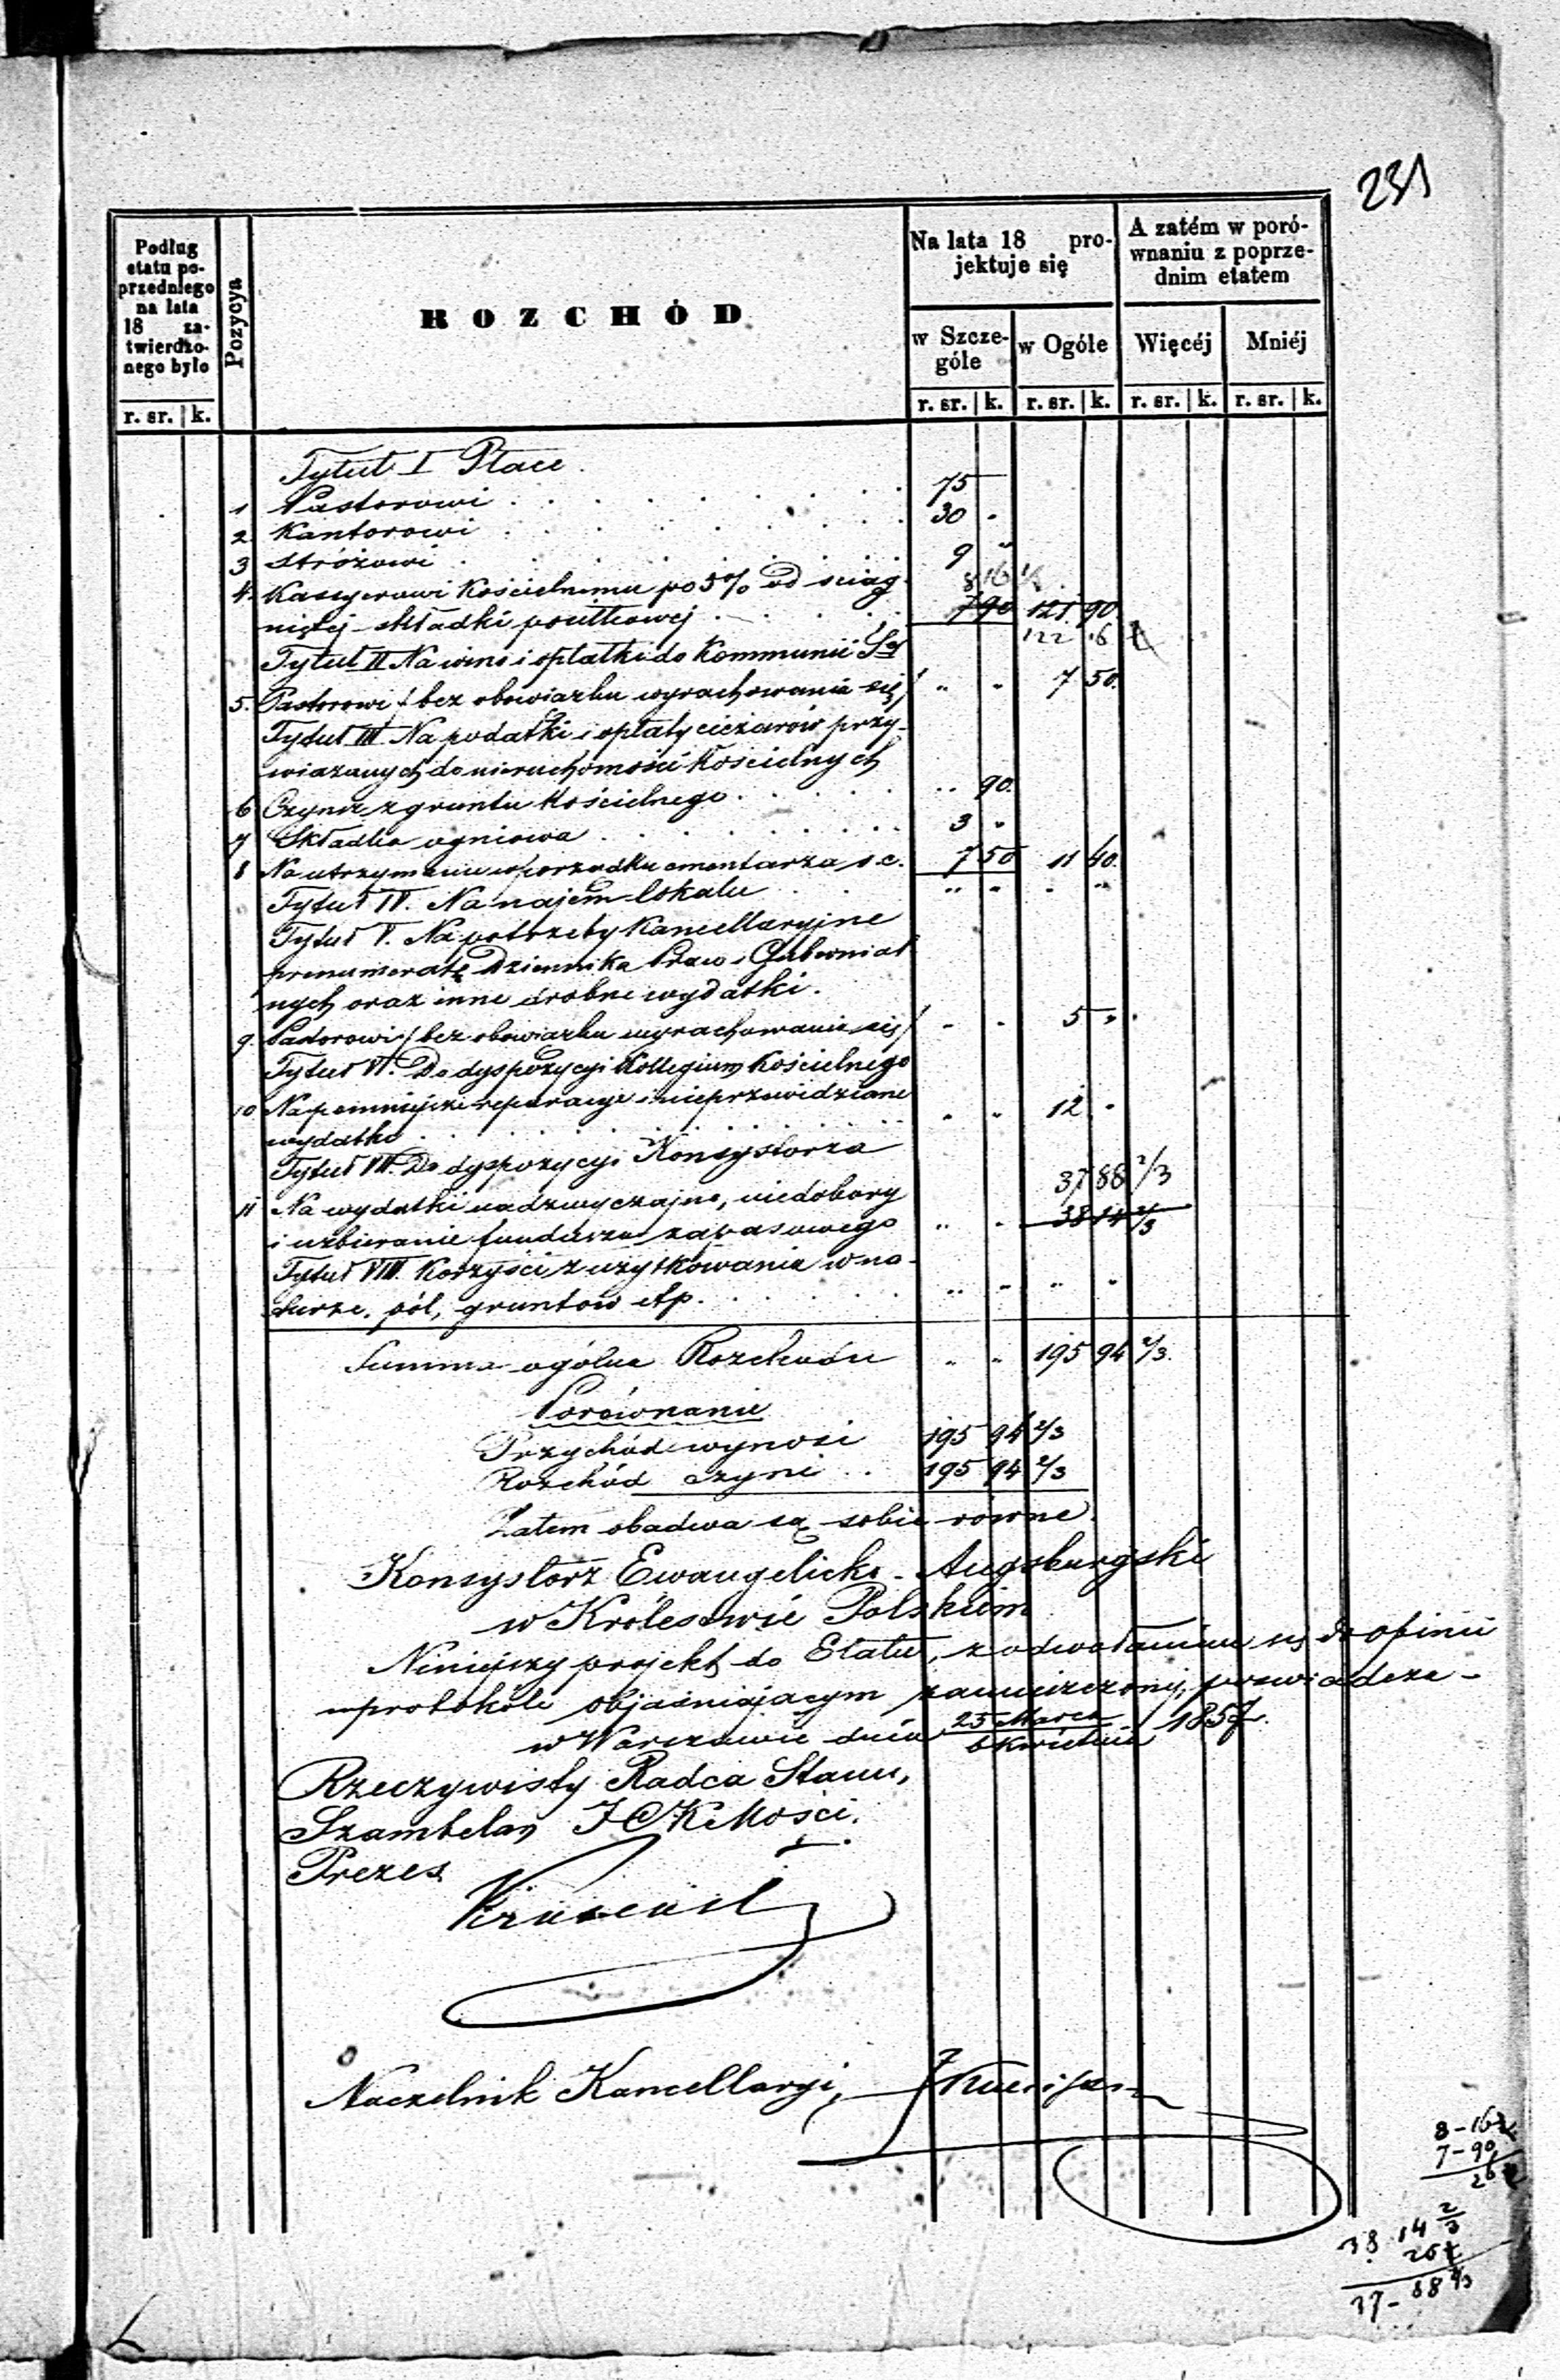 231
Podług etatu poprzedniego na lata 18 zatwierdzonego było
Pozycya
ROZCHÓD
Na lata 18 projektuje się
A zatém w porównaniu z poprzednim etatem
w Szczególe
w Ogóle
Więcéj
Mniéj
r. sr. k.
r. sr. k. r. sr. k. r. sr. k. r. sr. k.
Tytuł I Płace.
1 Pastorowi 75
2 Kantorowi 30 "
3 Stróżowi 9 "
4. Kassyerowi Kościelnemu po 5% od ściąg- 8 16
niętej składki posiłkowej 7 90 121 90
122 16
Tytuł II Na wino i opłatki do Kommunii
5. Pastorowi /bez obowiązku wyrachowania się/ " " 7 50.
Tytuł III Na podatki i opłaty ciężarów przy-
wiązanych do nieruchomości Kościelnych
6 Czynsz z gruntu Kościelnego " 90.
7 Składka ogniowa 3 "
8 Na utrzymanie w porządku cmentarza s.c. 7 50 11 40.
Tytuł IV. Na najem lokalu " " " "
Tytuł V. Na potrzeby Kancellaryjne
prenumeratę Dziennika Praw i Gubernial
nych oraz inne drobne wydatki.
9. Pastorowi /bez obowiązku wyrachowania się/ " " 5 "
Tytuł VI. Do dyspozycyi Kollegium Kościelnego
10 Na pomniejsze reparacye i nieprzewidziane
wydatki " " 12 "
Tytuł VII. Do dyspozycyi Konsystorza
11 Na wydatki nadzwyczajne, niedobory 37 88 2/3
i uzbieranie funduszu zapasowego " " 38 14 2/3
Tytuł VIII. Korzyści z użytkowania w na-
turze, pól, gruntów etp. " " " "
Summa ogólna Rozchodu " " 195 94 2/3.
Porównanie
Przychód wynosi 195 94 2/3
Rozchód czyni 195 94 2/3
Zatem obadwa są sobie równe.
Konsystorz Ewangelicko-Augsburgski
w Królestwie Polskim
Niniejszy projekt do Etatu, z odwołaniem się do opinii
w protokóle objaśniającym zamieszczonej, poświadcza -
w Warszawie dnia 25 Marca / 6 Kwietnia 1857.
Rzeczywisty Radca Stanu,
Szambelan JCK Mości.
Prezes
Naczelnik Kancellaryi,
8 - 16
7 - 90
26
38 14 2/3
26
37 - 88 2/3